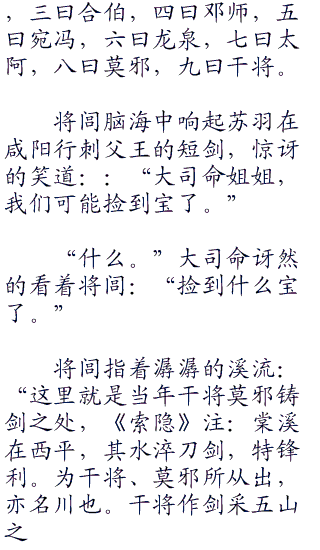 ，三曰合伯，四曰邓师，五
曰宛冯，六曰龙泉，七曰太
阿，八曰莫邪，九曰干将。
将闾脑海中响起苏羽在
咸阳行刺父王的短剑，惊讶
的笑道：：“大司命姐姐，
我们可能捡到宝了。”
“什么。”大司命讶然
的看着将闾：“捡到什么宝
了。”
将闾指着潺潺的溪流：
“这里就是当年干将莫邪铸
剑之处，《索隐》注：棠溪
在西平，其水淬刀剑，特锋
利。为干将、莫邪所从出，
亦名川也。干将作剑采五山
之